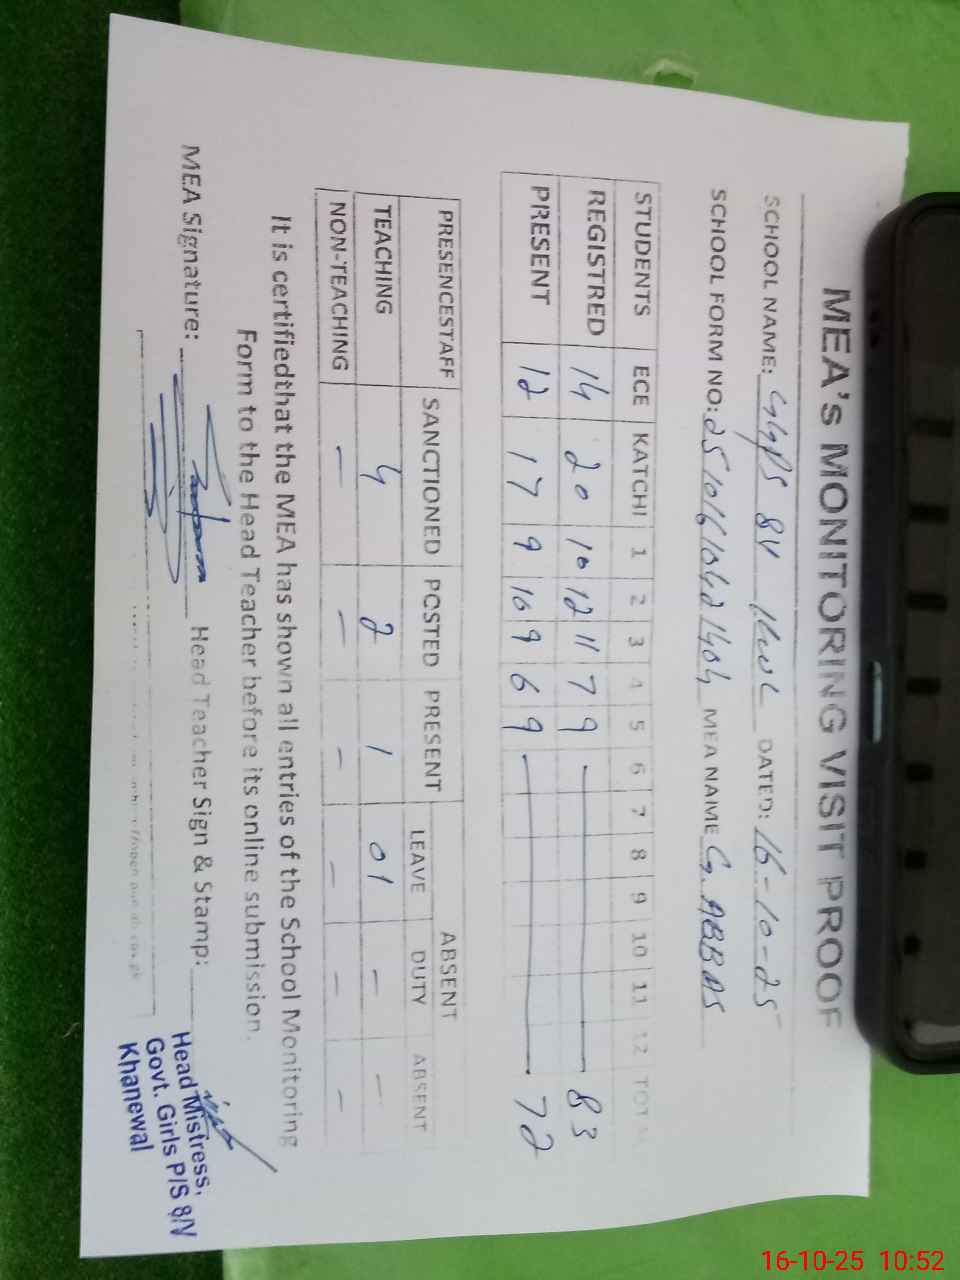 MEA's MONITORING VISIT PROOF
SCHOOL NAME: GGPS 8V DATED: 16-10-25
SCHOOL FORM NO: MEA NAME G. ABBAS
STUDENTS ECE KATCHI 1 2 3 4 5 6 7 8 9 10 11 12 TOTAL
REGISTRED 14 20 10 12 11 7 9 — 83
PRESENT 12 17 9 10 9 6 9 — 72
PRESENCESTAFF SANCTIONED POSTED PRESENT ABSENT
LEAVE DUTY ABSENT
TEACHING 4 2 1 01 - -
NON-TEACHING - - - - - -
It is certifiedthat the MEA has shown all entries of the School Monitoring
Form to the Head Teacher before its online submission.
MEA Signature: Head Teacher Sign & Stamp:
Head Mistress,
Govt. Girls P/S 8/V
Khanewal
16-10-25 10:52